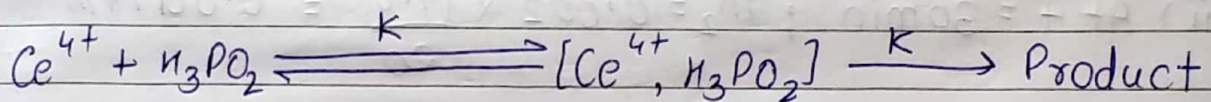 Ce⁴⁺ + H₃PO₂ ⇌ [Ce⁴⁺, H₃PO₂] → Product
K K